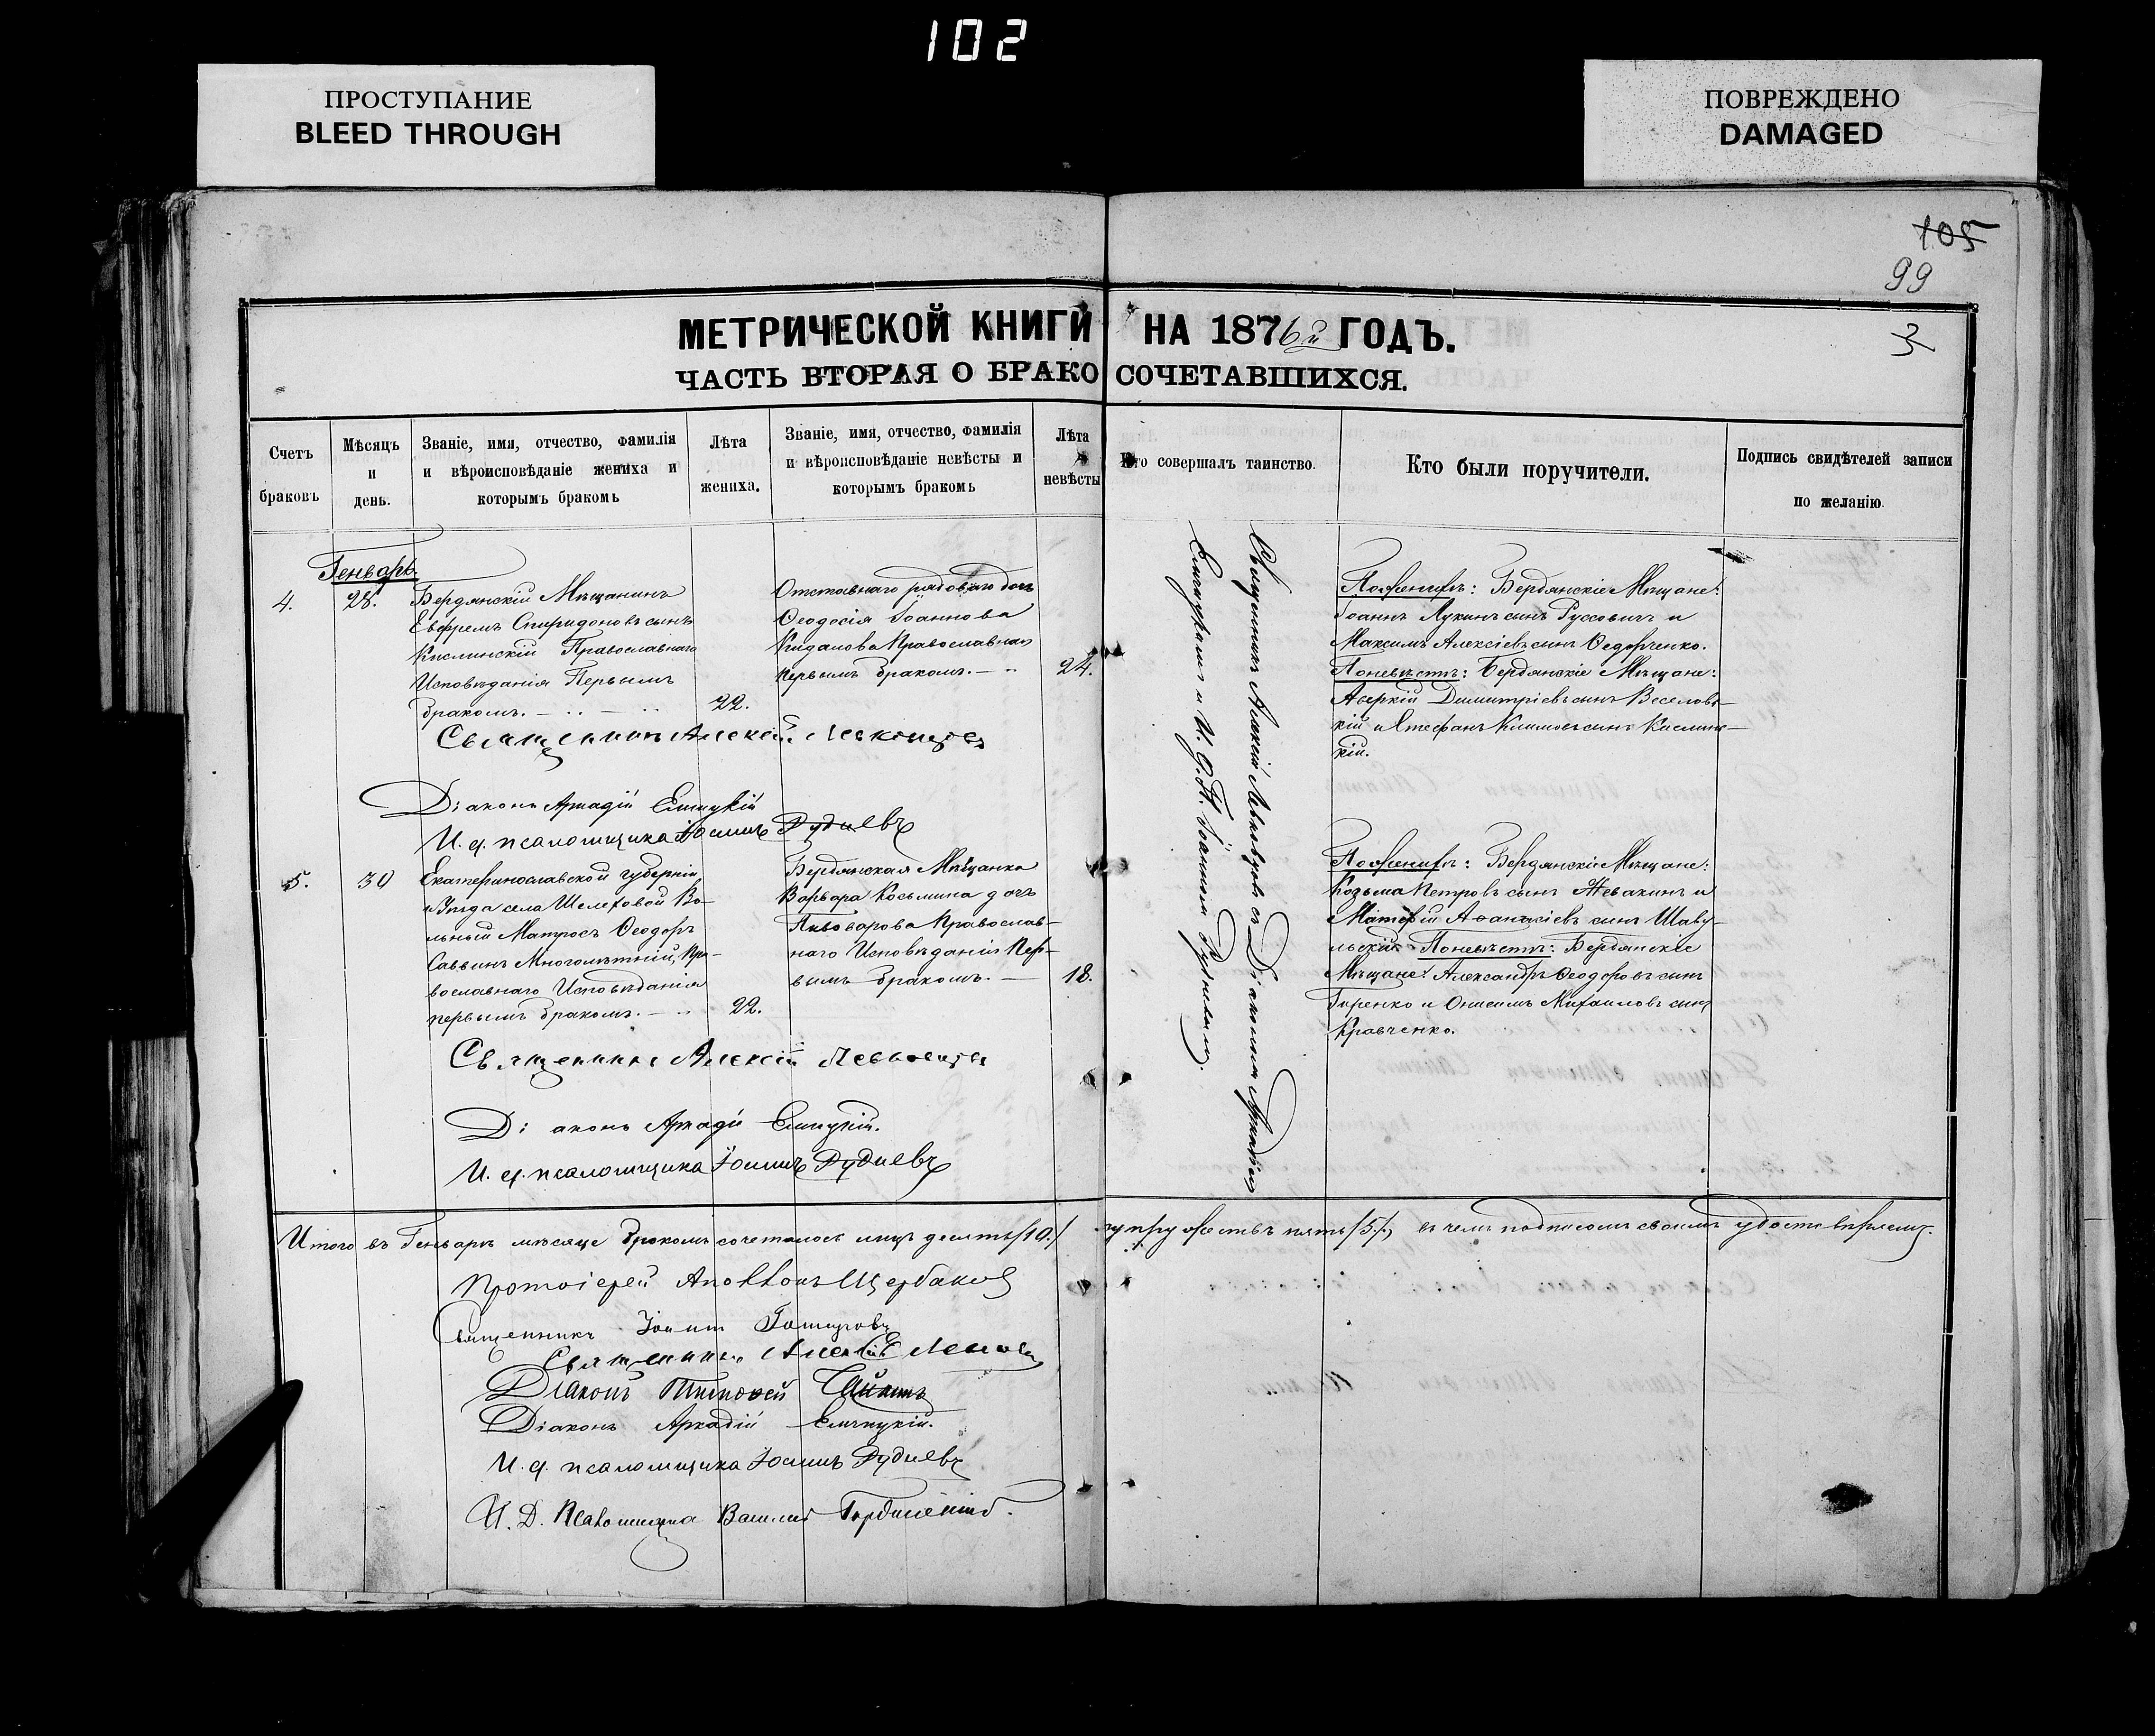 102
ПРОСТУПАНИЕ
BLEED THROUGH
ПОВРЕЖДЕНО
DAMAGED
105
99
3
МЕТРИЧЕСКОЙ КНИГИ НА 1876й ГОДЪ.
ЧАСТЬ ВТОРАЯ О БРАКОСОЧЕТАВШИХСЯ.
Счетъ
браковъ
Мѣсяцъ
и
день.
Званіе, имя, отчество, фамилія
и вѣроисповѣданіе жениха и
которымъ бракомъ
Лѣта
жениха.
Званіе, имя, отчество, фамилія
и вѣроисповѣданіе невѣсты и
которымъ бракомъ
Лѣта
невѣсты
Кто совершалъ таинство.
Кто были поручители.
Подпись свидѣтелей записи
по желанію.
Генварь.
4.
28.
Бердянскій Мѣщанинъ
Евфремъ Спиридоновъ сынъ
Кислинскій Православнаго
Исповѣданія Первымъ
бракомъ.
22.
Отставнаго рядоваго дочь
Ѳеодосія Іоаннова
Кидалова Православная
первымъ бракомъ.
24.
Священникъ Алексій Левковцевъ съ Діакономъ Аркадіемъ
Елчицкимъ и И. д. П. Іоанномъ Рудневымъ.
По женихѣ: Бердянскіе Мѣщане:
Іоаннъ Лукинъ сынъ Руссовичъ и
Максимъ Алексіевъ сынъ Ѳедорченко.
По невѣстѣ: Бердянскіе Мѣщане:
Аверкій Димитріевъ сынъ Веселов-
кій и Стефанъ Климовъ сынъ Кислинс-
кій.
Священникъ Алексій Левковцевъ
Діаконъ Аркадій Елчицкій
И. д. псаломщика Іоаннъ Рудневъ
5.
30
Екатеринославской губерніи
и Уѣзда села Шелеховой Во-
льный Матросъ Ѳеодоръ
Саввинъ Многолѣтній, Пра-
вославнаго Исповѣданія
первымъ бракомъ.
22.
Бердянская Мѣщанка
Варвара Косьмина дочь
Пивоварова Православ-
наго Исповѣданія Пер-
вымъ бракомъ.
18.
По женихѣ: Бердянскіе Мѣщане:
Козьма Петровъ сынъ Жевакинъ и
Матѳій Аѳанасіевъ сынъ Шаву-
льскій. По невѣстѣ: Бердянскіе
Мѣщане: Александръ Ѳеодоровъ сынъ
Гиренко и Онисимъ Михаиловъ сынъ
Кравченко.
Священникъ Алексій Левковцевъ
Діаконъ Аркадій Елчицкій.
И. д. псаломщика Іоаннъ Рудневъ
Итого въ Генварѣ мѣсяцѣ бракомъ сочеталось лицъ десять /10./ супружествъ пять /5./, въ чемъ подписомъ своимъ удостовѣряемъ.
Протоіерей Аполлонъ Щербаковъ
Священникъ Іоаннъ
Священникъ Алексій
Діаконъ Тимоѳей
Діаконъ Аркадій Елчицкій.
И. д. псаломщика Іоаннъ Рудневъ
И. Д. Псаломщика Василій